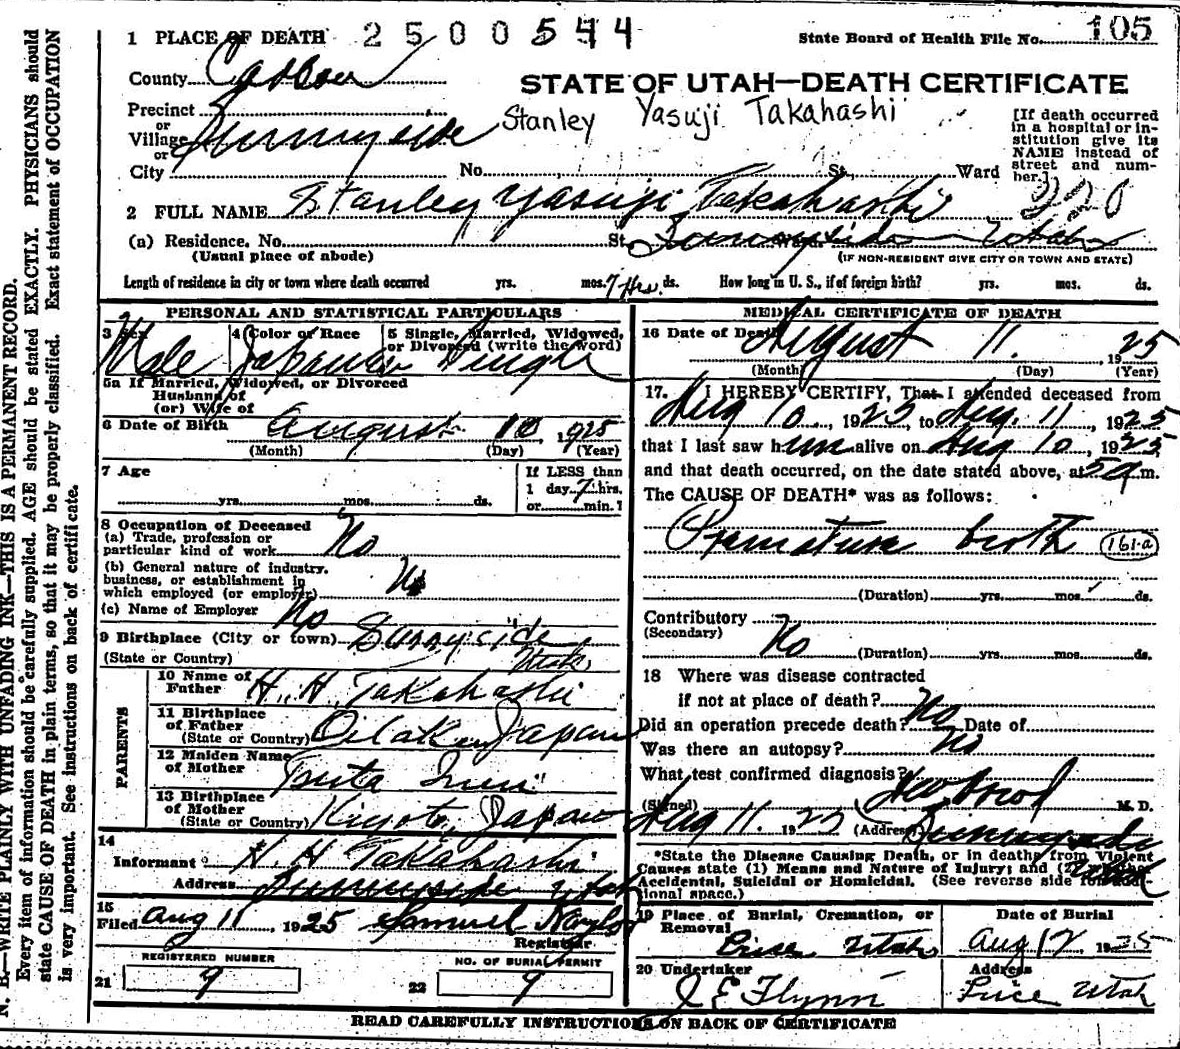 1 PLACE OF DEATH 2500544 State Board of Health File No. 105
County Carbon
STATE OF UTAH—DEATH CERTIFICATE
Precinct
or
Village Sunnyside Stanley Yasuji Takahashi
or
City No. St. Ward
[If death occurred
in a hospital or in-
stitution give its
NAME instead of
street and num-
ber.]
2 FULL NAME Stanley Yasuji Takahashi
(a) Residence. No. St. Sunnyside Utah
(Usual place of abode) (IF NON-RESIDENT GIVE CITY OR TOWN AND STATE)
Length of residence in city or town where death occurred yrs. mos. 7 Hrs. ds. How long in U. S., if of foreign birth? yrs. mos. ds.
PERSONAL AND STATISTICAL PARTICULARS
3 Sex Male
4 Color or Race Japanese
5 Single, Married, Widowed,
or Divorced (write the word) Single
5a If Married, Widowed, or Divorced
Husband of
(or) Wife of
6 Date of Birth August 10, 1925
(Month) (Day) (Year)
7 Age yrs. mos. ds.
If LESS than
1 day 7 hrs.
or min.
8 Occupation of Deceased
(a) Trade, profession or
particular kind of work No
(b) General nature of industry,
business, or establishment in
which employed (or employer) No
(c) Name of Employer No
9 Birthplace (City or town) Sunnyside
(State or Country) Utah
PARENTS
10 Name of
Father H. H. Takahashi
11 Birthplace
of Father
(State or Country) Japan
12 Maiden Name
of Mother
13 Birthplace
of Mother
(State or Country) Kiyoto, Japan
14
Informant H. H. Takahashi
Address Sunnyside Utah
15
Filed Aug 11, 1925 Samuel Naylor
Registrar
REGISTERED NUMBER
21 9
NO. OF BURIAL PERMIT
22 9
MEDICAL CERTIFICATE OF DEATH
16 Date of Death August 11. 1925
(Month) (Day) (Year)
17. I HEREBY CERTIFY, That I attended deceased from
Aug 10, 1925, to Aug. 11, 1925
that I last saw h im alive on Aug 10, 1925
and that death occurred, on the date stated above, at 5 a m.
The CAUSE OF DEATH* was as follows:
Premature birth 161-a
(Duration) yrs. mos. ds.
Contributory
(Secondary) No
(Duration) yrs. mos. ds.
18 Where was disease contracted
if not at place of death? No
Did an operation precede death? No Date of
Was there an autopsy? No
What test confirmed diagnosis?
(Signed) M. D.
Aug 11. 1925 (Address) Sunnyside
Utah
*State the Disease Causing Death, or in deaths from Violent
Causes state (1) Means and Nature of Injury; and (2)
Accidental, Suicidal or Homicidal. (See reverse side for addi-
tional space.)
19 Place of Burial, Cremation, or
Removal Price Utah
Date of Burial
Aug 12 1925
20 Undertaker
J E Flynn
Address
Price Utah
READ CAREFULLY INSTRUCTIONS ON BACK OF CERTIFICATE
N. B.—WRITE PLAINLY WITH UNFADING INK—THIS IS A PERMANENT RECORD.
Every item of information should be carefully supplied. AGE should be stated EXACTLY. PHYSICIANS should
state CAUSE OF DEATH in plain terms, so that it may be properly classified. Exact statement of OCCUPATION
is very important. See instructions on back of certificate.